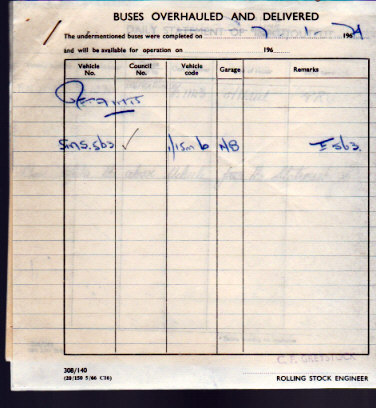 BUSES OVERHAULED AND DELIVERED
The undermentioned buses were completed on 7 1 1974
and will be available for operation on 196
Vehicle No. Council No. Vehicle code Garage Remarks
SMS.563 ✓ 1/1SM6 NB I 563.
C. F. GREYSTOCK
308/140
(20/150 5/66 C36)
ROLLING STOCK ENGINEER